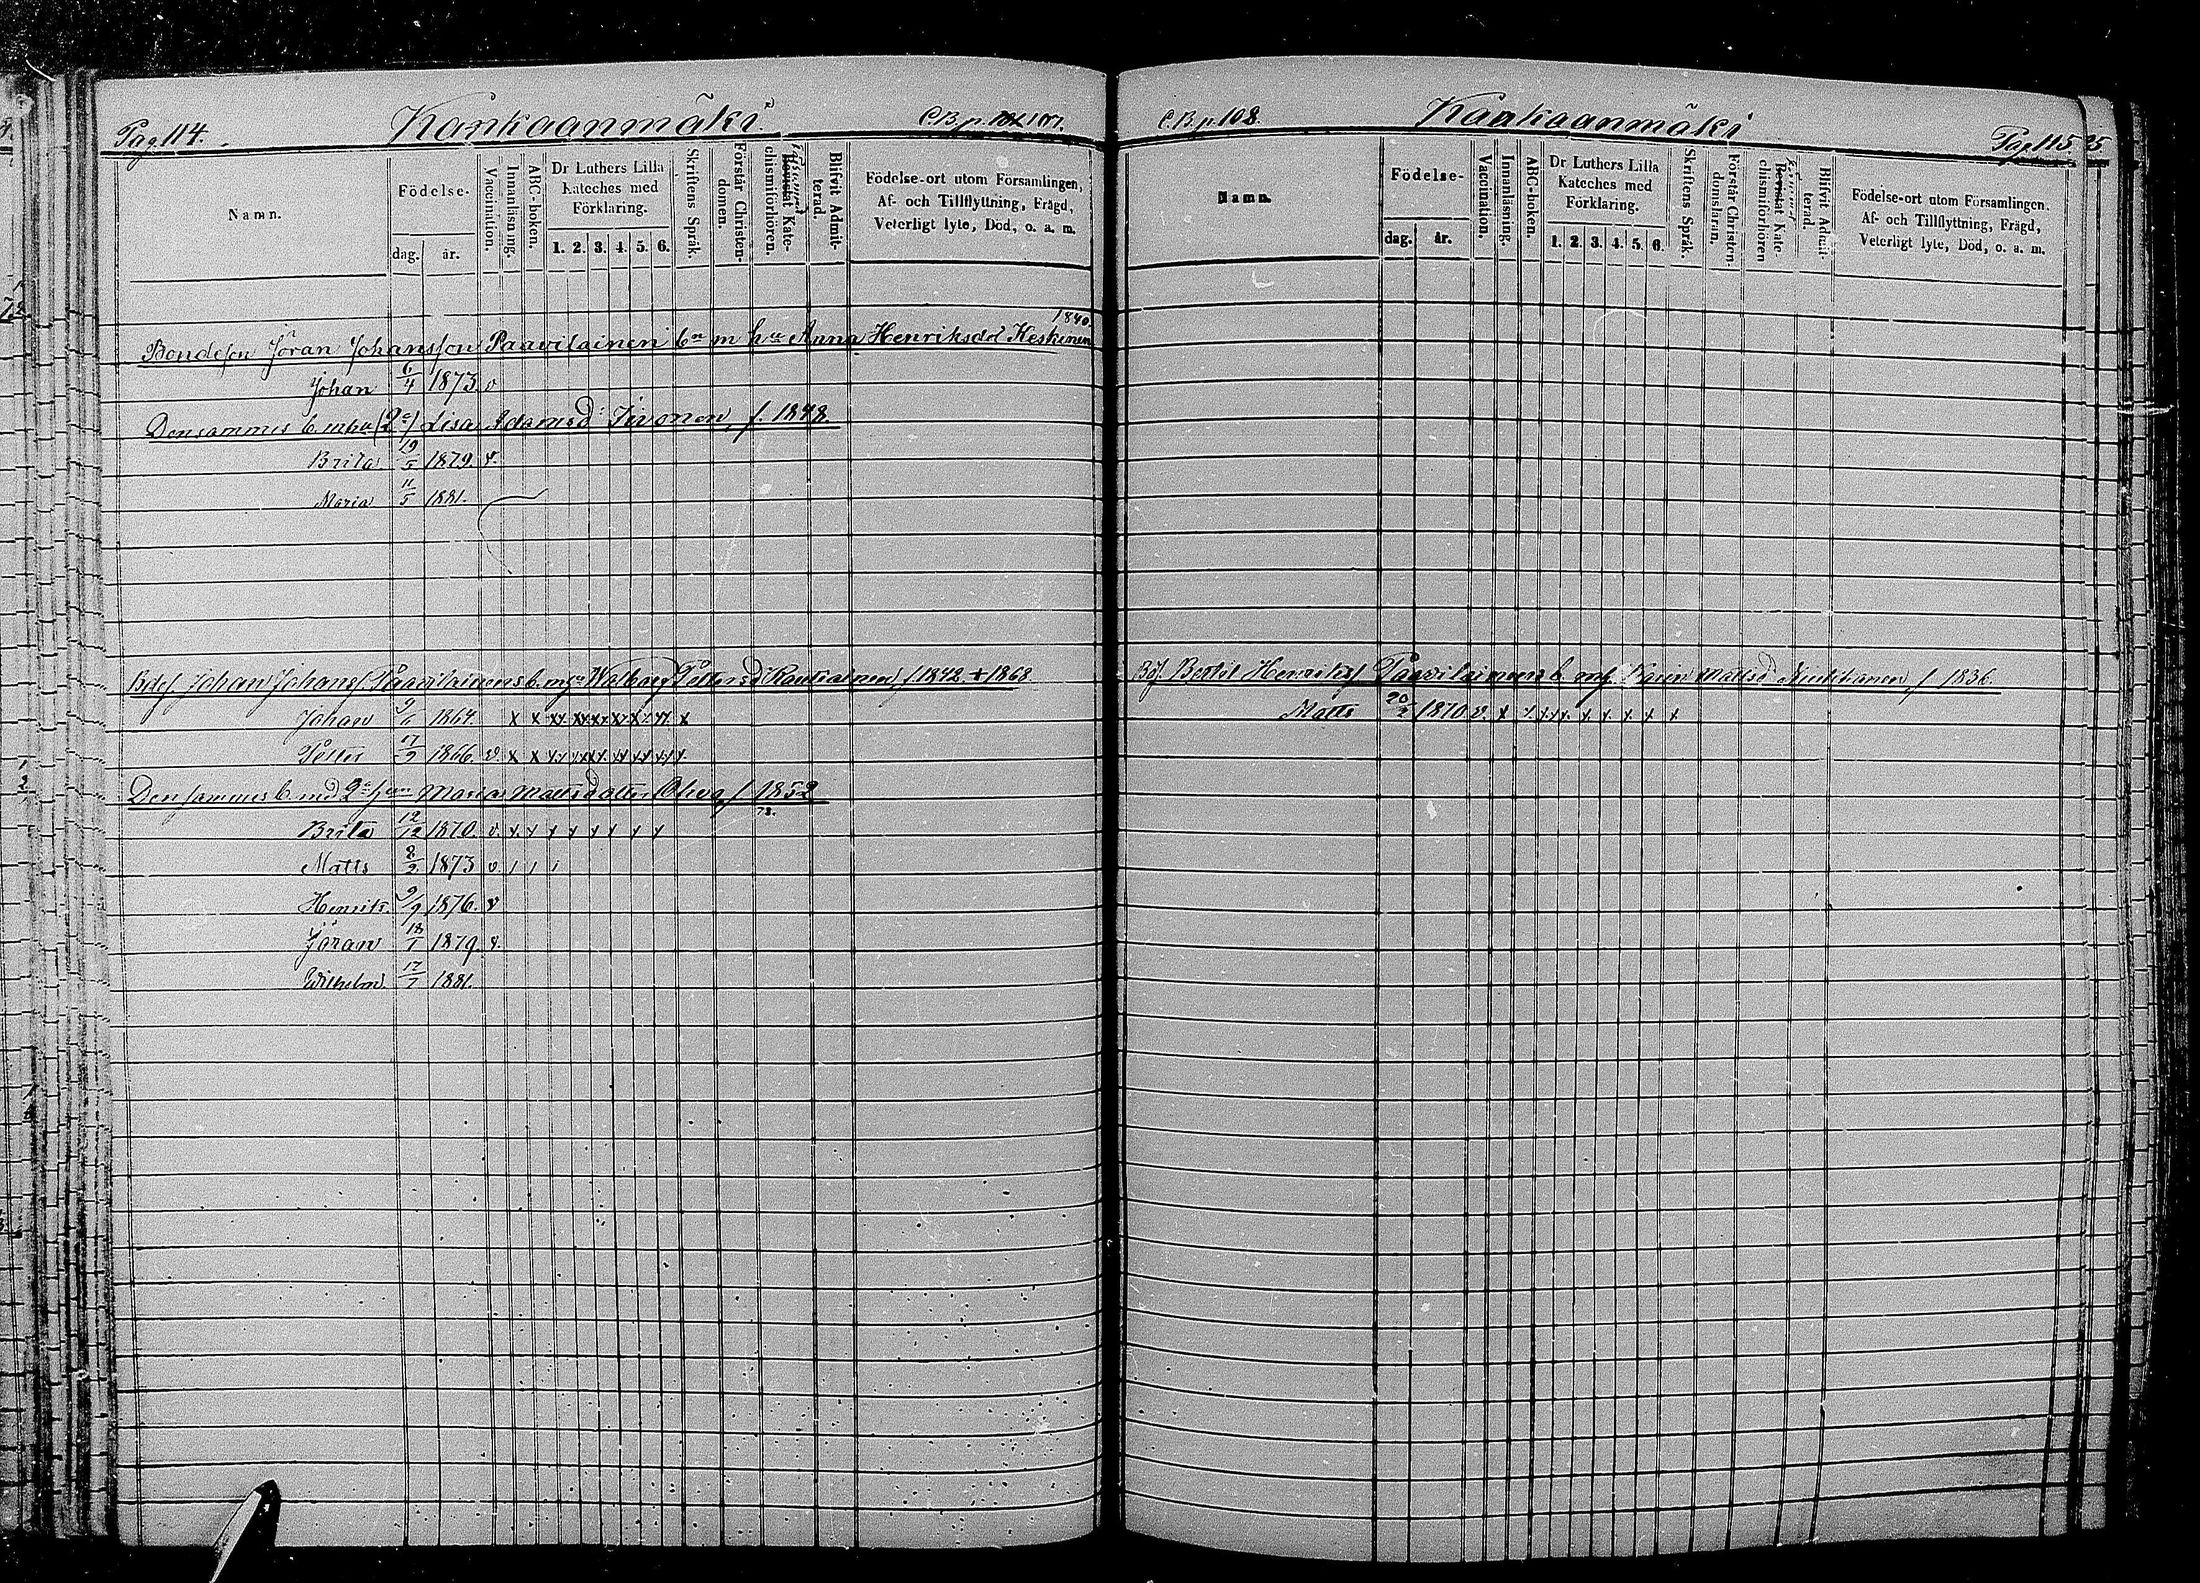 Pag 114. Kankaanmäki. C.B. p. 107.
Namn. Födelse- dag. år. Vaccination. Innanläsning. ABC-boken. Dr Luthers Lilla Kateches med Förklaring. 1. 2. 3. 4. 5. 6. Skriftens Språk. Förstår Christendomen. Kate-chismiförhören. Blifvit Admitterad. Födelse-ort utom Församlingen, Af- och Tillflyttning, Frägd, Veterligt lyte, Död, o. a. m.
1840.
Bondeson Jöran Johansson Paavilainen bn m hu Anna Henriksd Keskinen
Johan 6/4 1873 v
Densammes b. m hu (2a) Lisa Adamsd Iivonen, f. 1848.
Brita 19/5 1879. v.
Maria 11/5 1881.
Johan Johanss Paavilainens b. m Walborg Pettersd Rautiainen f 1842 + 1868
Johan 9/6 1864. x x xx xx xx xx x
Petter 17/9 1866. v. x x
Densammes b. md 2a Maria Mattsdotter Oliva f 1852
73.
Brita 12/12 1870. v. x x x x x x x x
Matts 8/2 1873 v. / / /
Henrik. 9/9 1876. v
Jöran 18/1 1879. v.
Wilhelm 17/7 1881.
C.B. p. 108. Kankaanmäki Pag 115.
Namn. Födelse- dag. år. Vaccination. Innanläsning. ABC-boken. Dr Luthers Lilla Kateches med Förklaring. 1. 2. 3. 4. 5. 6. Skriftens Språk. Förstår Christendomsläran. Kate-chismiförhören Blifvit Admitterad. Födelse-ort utom Församlingen. Af- och Tillflyttning, Frägd, Veterligt lyte, Död, o. a. m.
Bertil Henrikss Paavilainens b. m Karin Mattsd f 1836.
Matts 20/2 1870 v. x